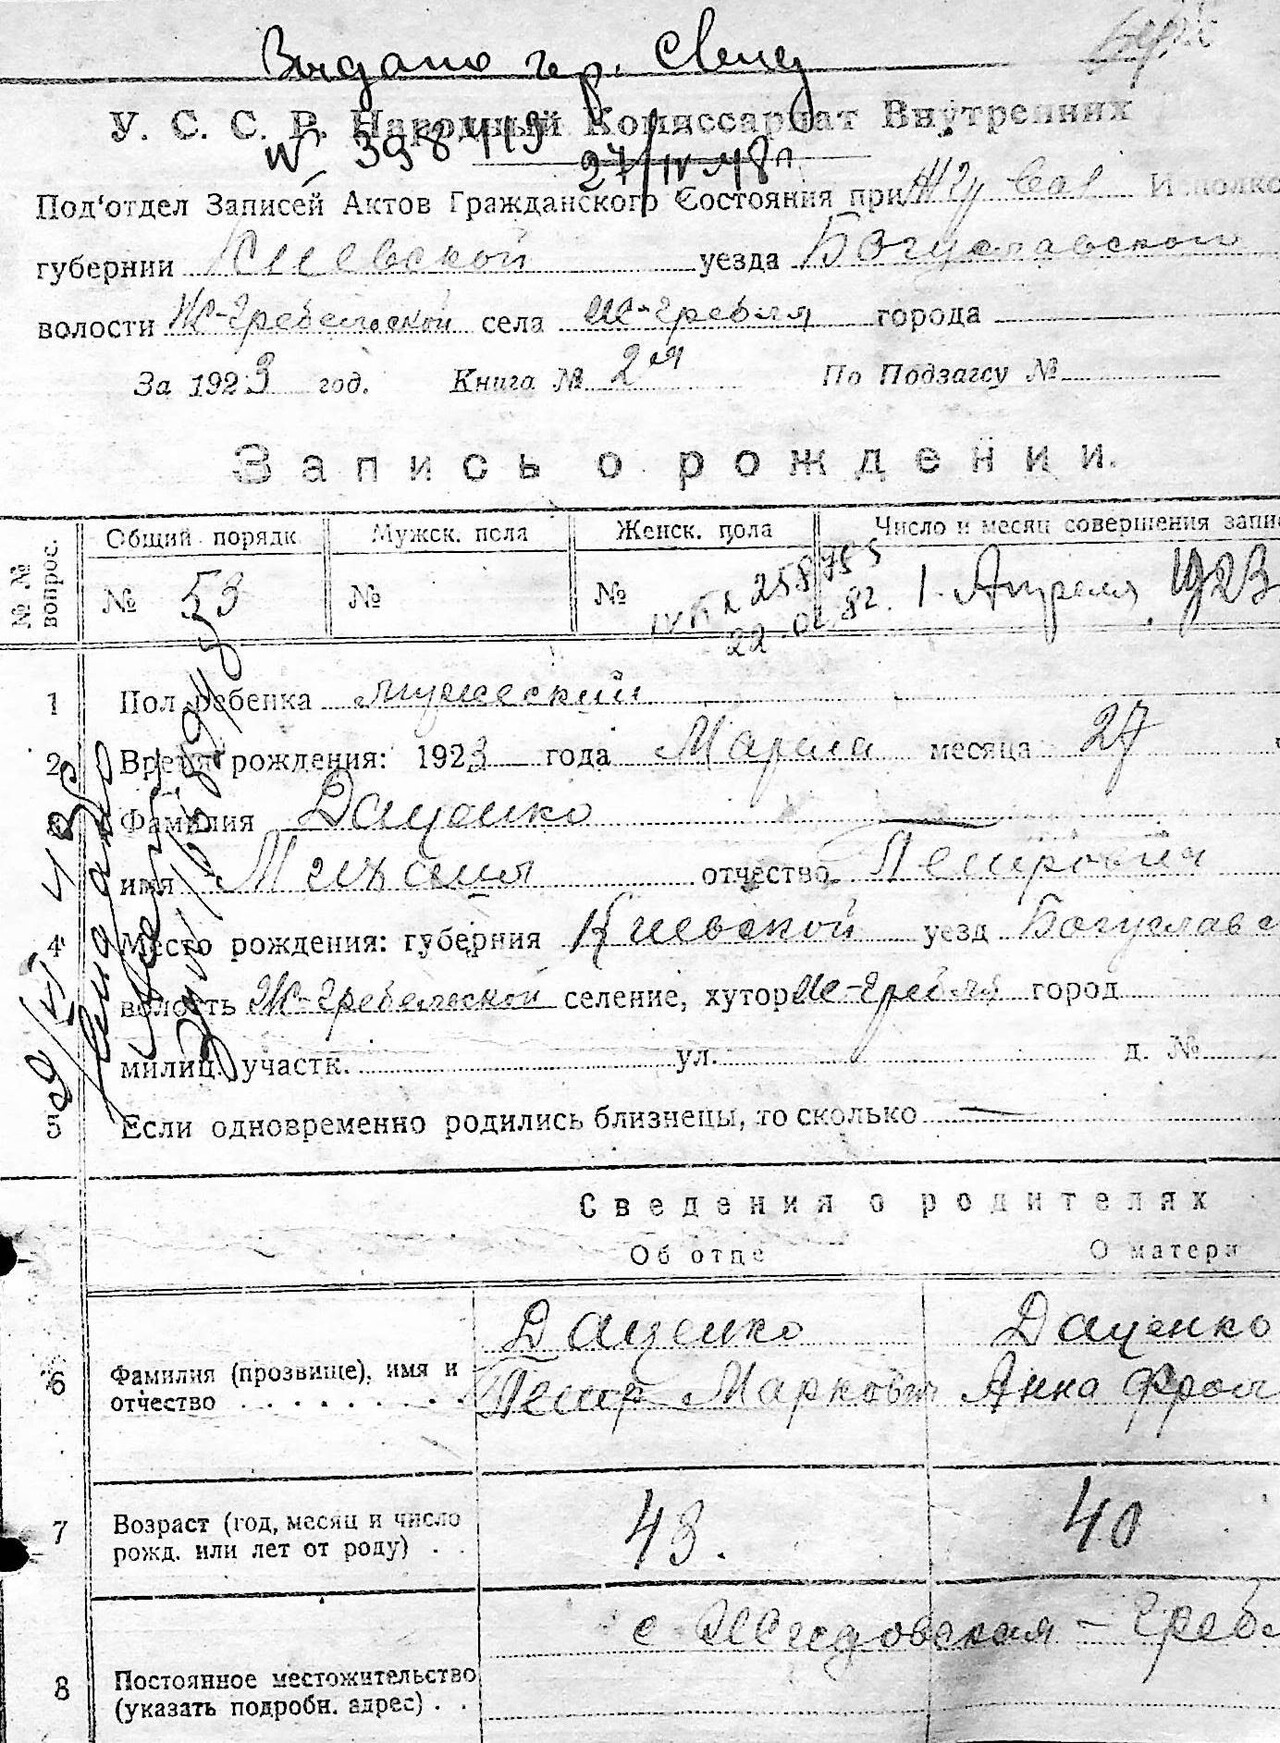 Видано
№ 398119
27/IV 48
У. С. С. Р. Народный Комиссариат Внутренних
Под'отдел Записей Актов Гражданского Состояния при Исполко
губернии Киевской уезда Богуславского
волости Ж-Гребельской села Ж-Гребля города
За 1923 год. Книга № 2я По Подзагсу №
Запись о рождении.
№ № вопрос.
Общий порядк. Мужск. пола Женск. пола Число и месяц совершения запи
№ 53 № № 1. Апреля 1923
258785
22 02 82.
1 Пол ребенка мужеский
2 Время рождения: 1923 года Марта месяца 27
3 Фамилия Даценко
имя отчество Петрович
4 Место рождения: губерния Киевской уезд Богуславс
волость Ж-Гребельской селение, хутор Ж-Гребля город
милиц. участк. ул. д. №
5 Если одновременно родились близнецы, то сколько —
Сведения о родителях
Об отце О матери
Даценко Даценко
6 Фамилия (прозвище), имя и отчество Петр Маркович Анна Фром
7 Возраст (год, месяц и число 43. 40
рожд. или лет от роду)
с. Жидовская-Гребл
8 Постоянное местожительство
(указать подробн. адрес)